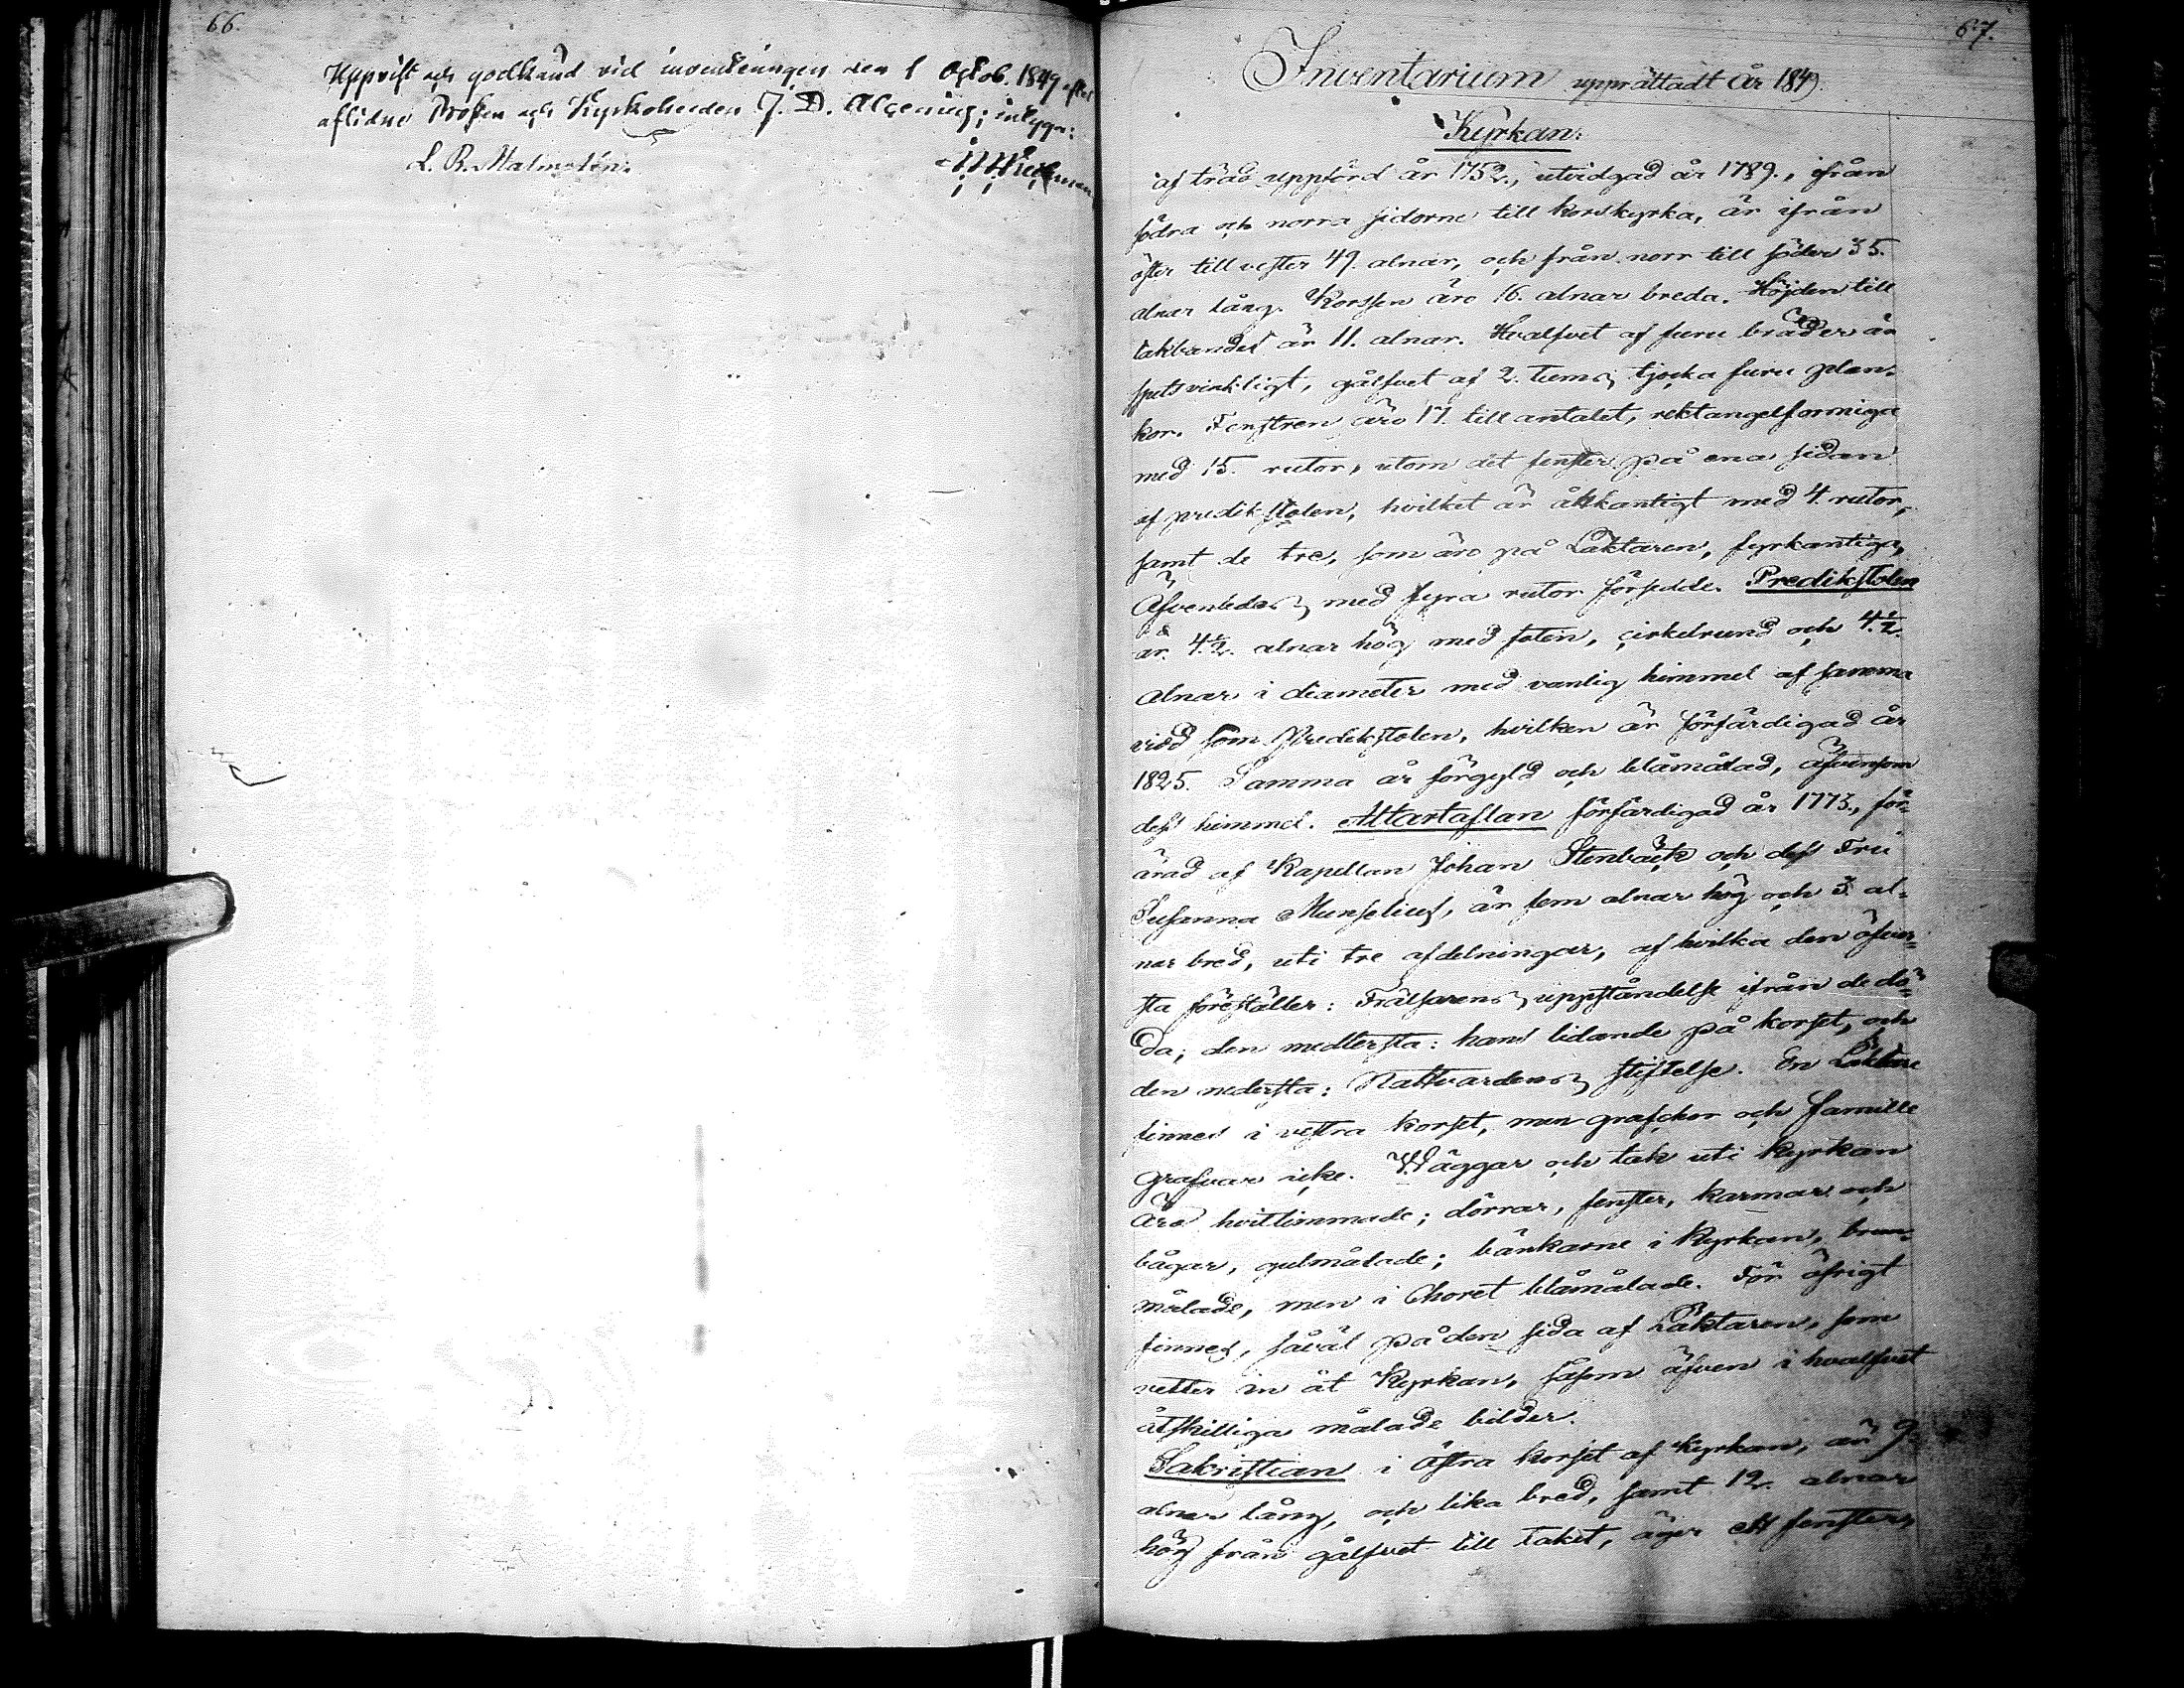 66.
Uppvist och godkänd vid inventeringen den 1 Octob. 1849 efter
aflidne Prosten och Kyrkoherden J. D. Alcenius; intyga:
L. B. Malmstén.
67.
Inventarium upprättadt År 1849.
Kyrkan:
af träd uppförd år 1752., utvidgad år 1789., ifrån
södra och norra sidorne till korskyrka, är ifrån
öster till vester 49. alnar, och från norr till söder 35.
alnar lång. Korssen äro 16. alnar breda. Höjden till
takbandet är 11. alnar. Hvalfvet af furu bräder är
spetsvinkligt, gålfvet af 2. tums tjocka furu plan-
kor. Fenstren äro 17. till antalet, rektangelformiga
med 15. rutor, utom det fenster på ena sidan
af predikstolen, hvilket är åttkantigt med 4. rutor,
samt de tre, som äro på Läktaren, fyrkantiga,
äfvenledes med fyra rutor försedde. Predikstolen
är 4.½. alnar hög med foten, cirkelrund och 4.½.
alnar i diameter med vanlig himmel af samma
vidd som Predikstolen, hvilken är förfärdigad år
1825. Samma år förgyld och blåmålad, äfvensom
dess himmel. Altartaflan förfärdigad år 1773., för-
ärad af Kapellan Johan Stenbäck och dess Fru
Susanna Munselius, är fem alnar hög och 3 al-
nar bred, uti tre afdelningar, af hvilka den öfver-
sta föreställer: Frälsarens uppståndelse ifrån de dö-
da; den medlersta: hans lidande på korset, och
den nedersta: Nattvardens stiftelse. En Läktare
finnes i vestra korset, men grafchor och famille
grafvar icke. Wäggar och tak uti Kyrkan
äro hvitlimmade; dörrar, fenster, karmar och
bågar, gulmålade; bänkarne i Kyrkan, brun-
målade, men i Choret blåmålade. För öfrigt
finnes, såväl på den sida af Läktaren, som
vetter in åt Kyrkan, såsom äfven i hvalfvet
åtskilliga målade bilder.
Sakristian i östra korset af Kyrkan, är 9
alnar lång, och lika bred, samt 12. alnar
hög från gålfvet till taket, äger ett fenster,